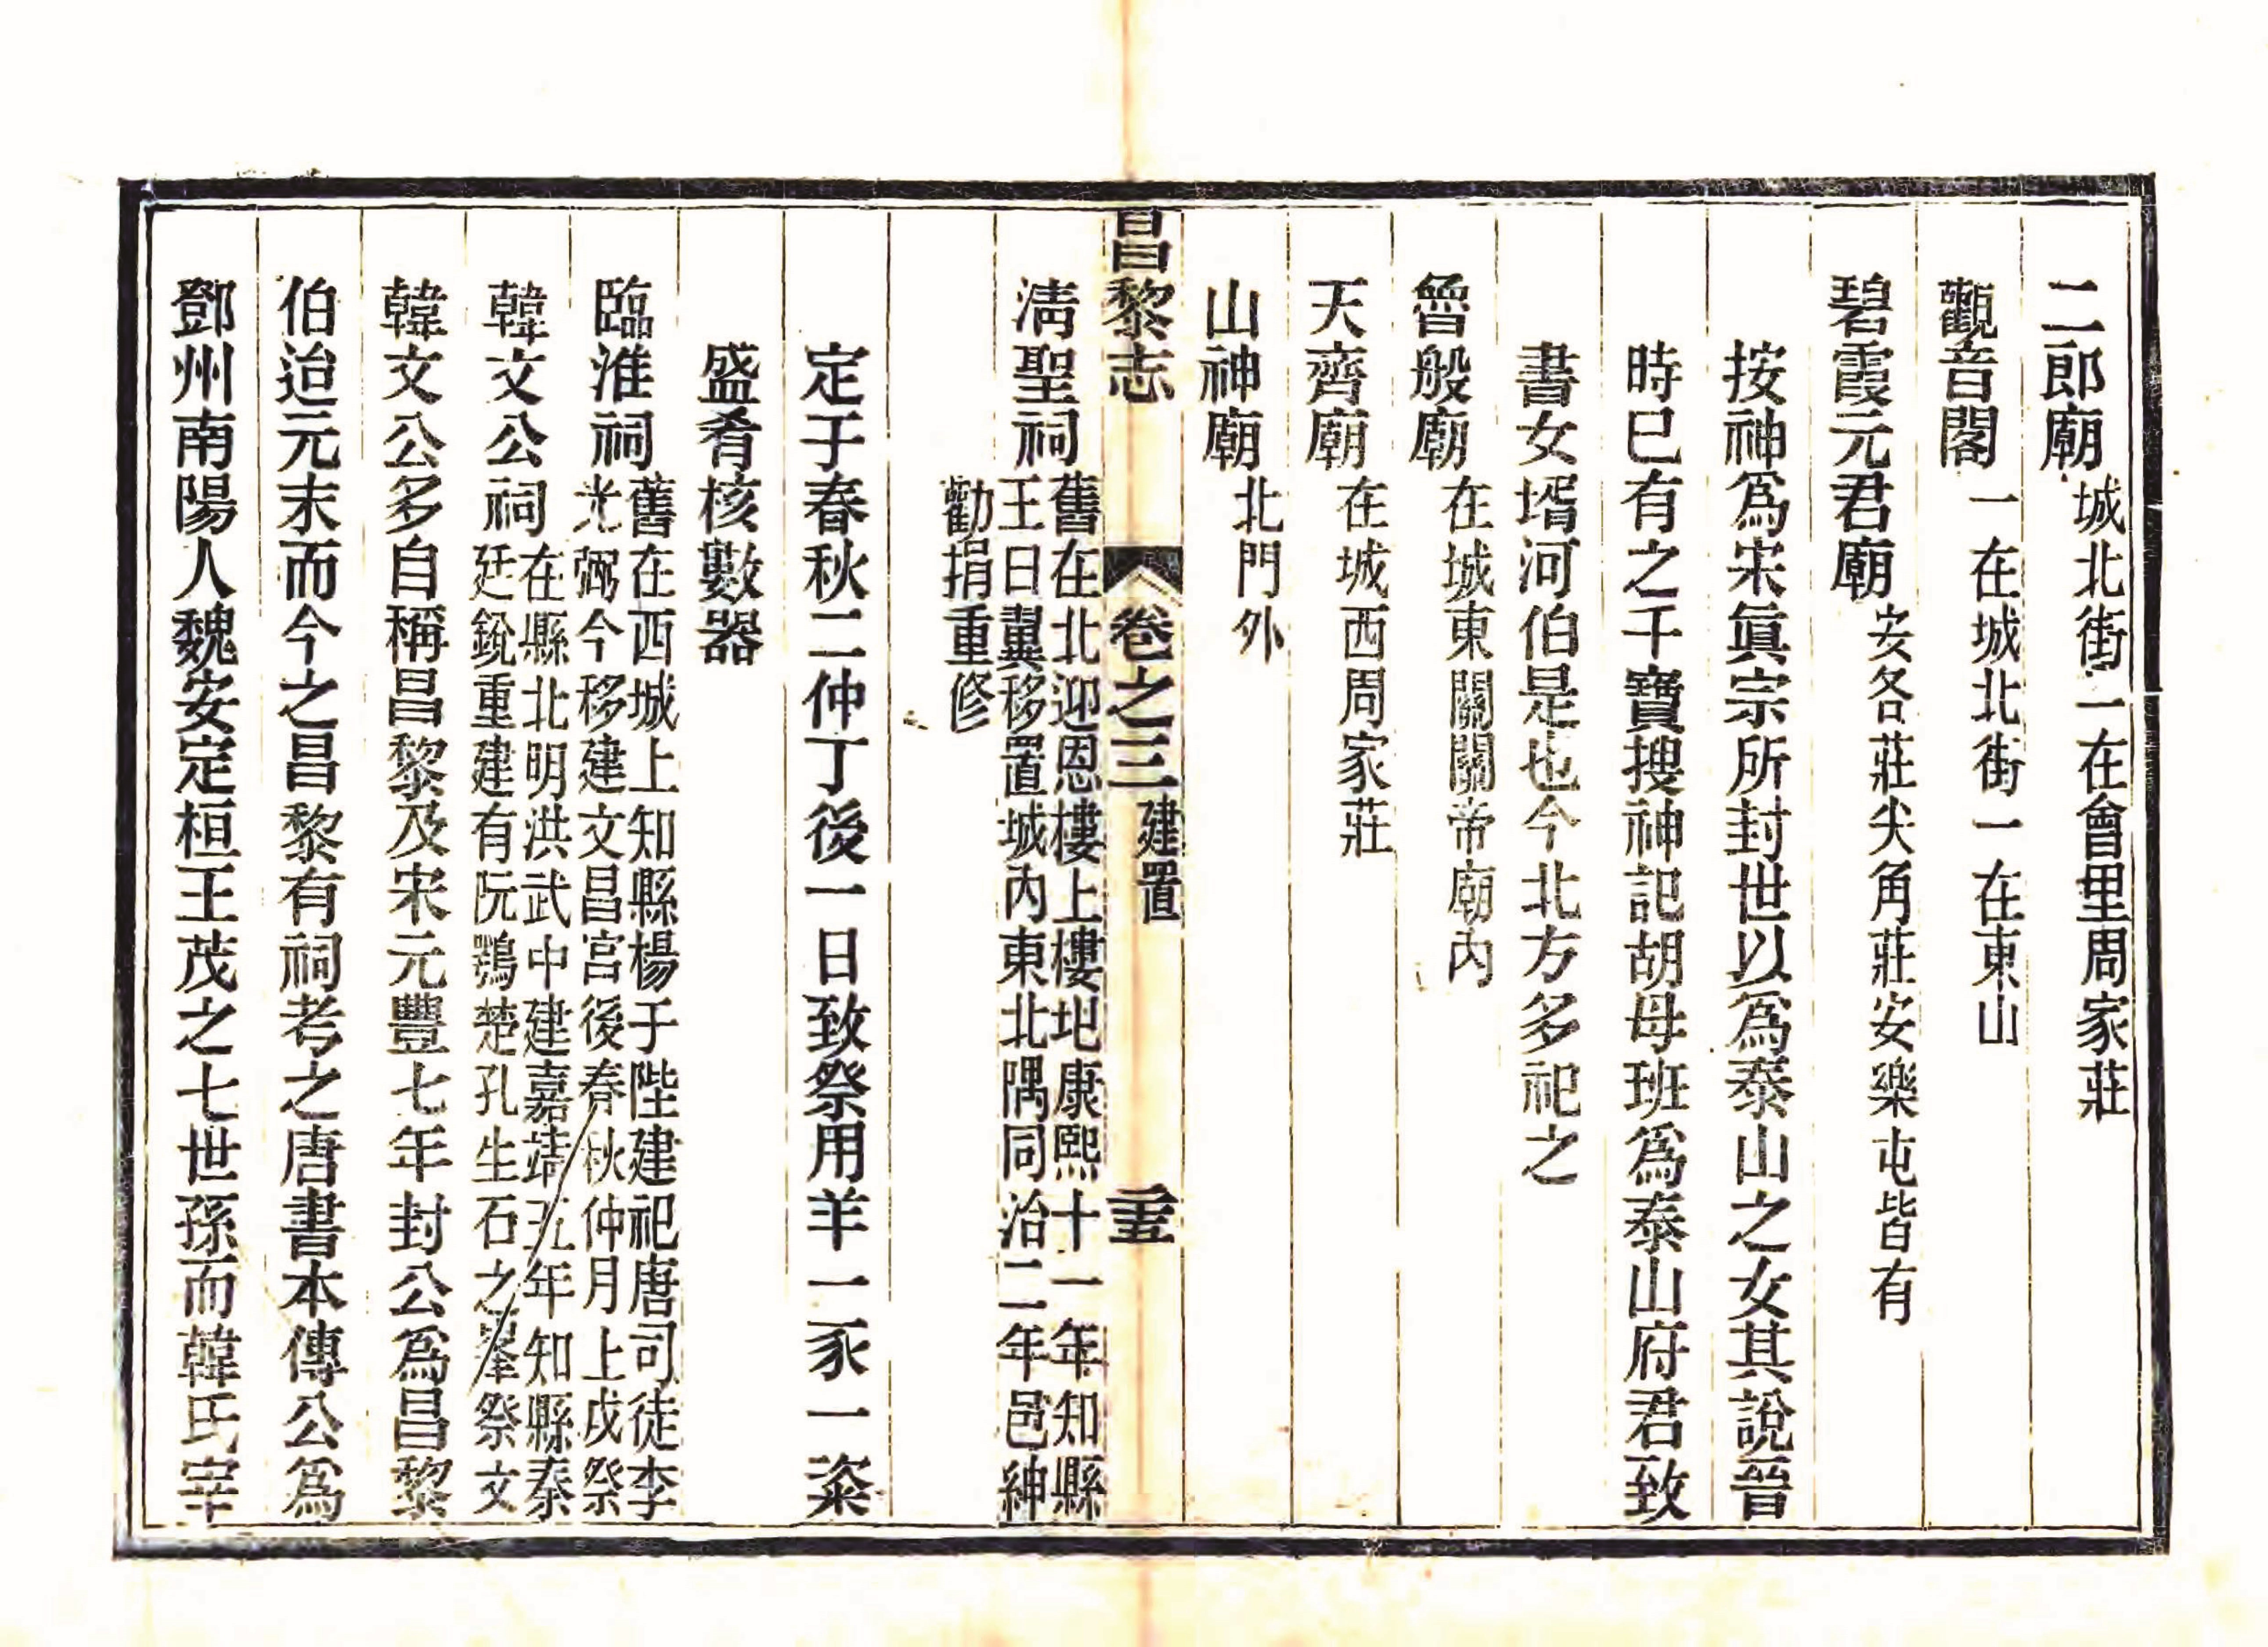 二郎廟城北街一在會里周家莊
觀音閣一在城北街一在東山
碧霞元君廟安各莊尖角莊安樂屯皆有
按神爲宋眞宗所封世以爲泰山之女其說晉
時巳有之干寶搜神記胡母班爲泰山府君致
書女壻河伯是也今北方多祀之
魯般廟在城東關關帝廟內
天齊廟在城西周家莊
山神廟北門外
昌黎志 卷之三 建置 二十五
淸聖祠
舊在北迎恩樓上樓圯康熙十一年知縣
王日翼移置城內東北隅同治二年邑紳
勸捐重修
定于春秋二仲丁後一日致祭用羊一豕一粢
盛肴核數器
臨淮祠
舊在西城上知縣楊于陛建祀唐司徒李
光弼今移建文昌宮後春秋仲月上戊祭
韓文公祠
在縣北明洪武中建嘉靖五年知縣秦
廷銳重建有阮鶚楚孔生石之峯祭文
韓文公多自稱昌黎及宋元豐七年封公爲昌黎
伯迨元末而今之昌黎有祠考之唐書本傳公爲
鄧州南陽人魏安定桓王茂之七世孫而韓氏宰